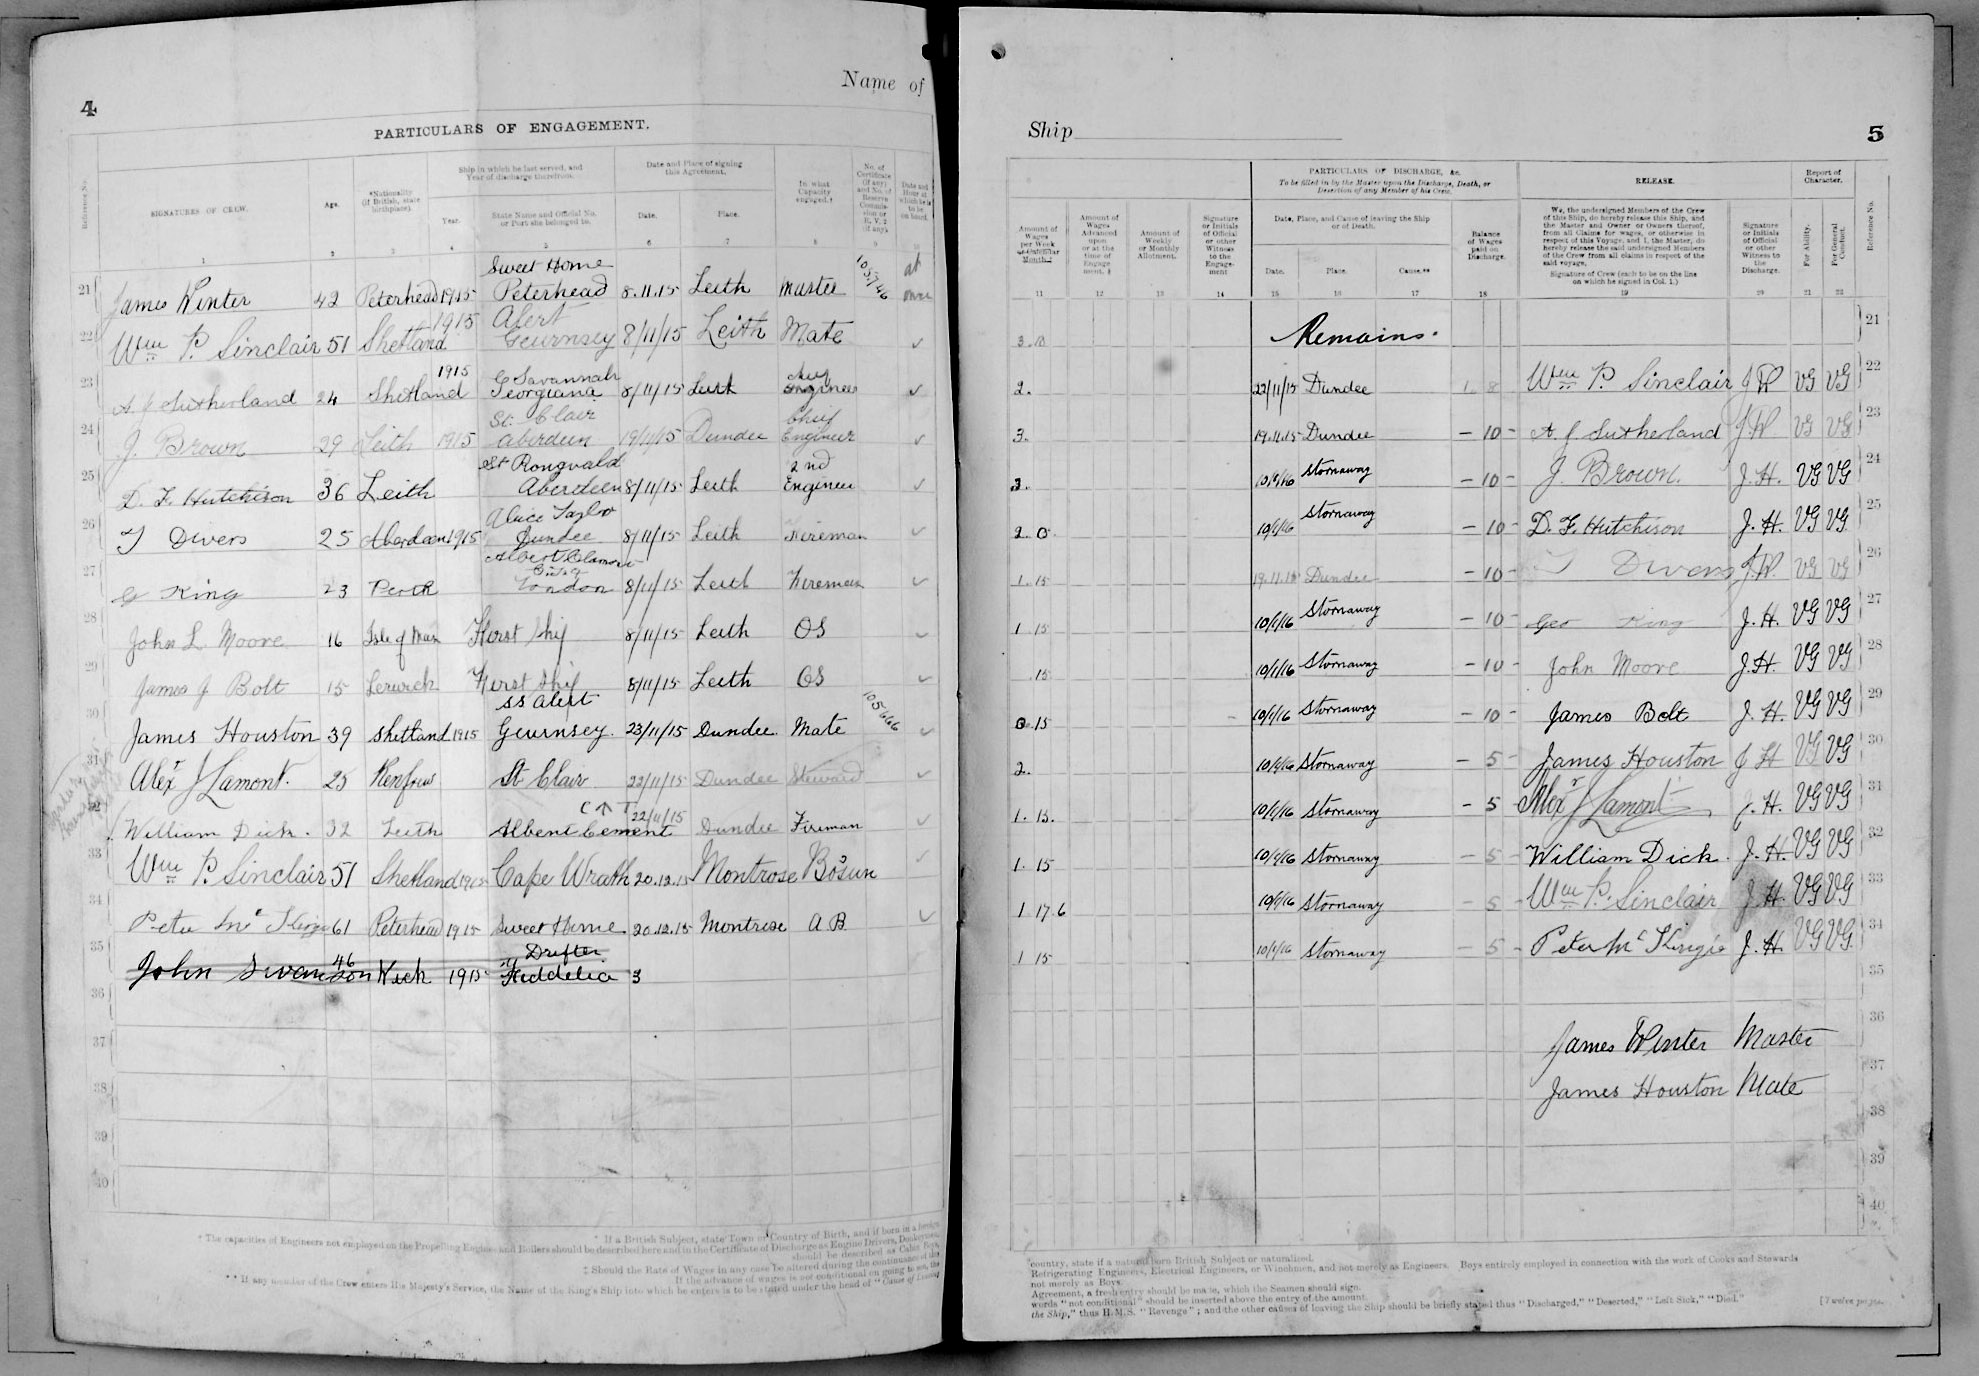 4
Name of
PARTICULARS OF ENGAGEMENT.
Reference No.
SIGNATURES OF CREW.
Age.
*Nationality (If British, state birthplace).
Ship in which he last served, and Year of discharge therefrom.
Year.
State Name and Official No. or Port she belonged to.
Date and Place of signing this Agreement.
Date.
Place.
In what Capacity engaged.†
No. of Certificate (if any) and No. of Reserve Commission or R.V.2 (if any).
Date and Hour at which he is to be on board.
1 2 3 4 5 6 7 8 9 10
21 James Winter 42 Peterhead 1915 Sweet Home Peterhead 8.11.15 Leith Master 105346 at once
22 Wm P. Sinclair 51 Shetland 1915 Alert Geurnsey 8/11/15 Leith Mate ✓
23 A J Sutherland 24 Shetland 1915 Savannah Georgiana 8/11/15 Leith Chief Engineer ✓
24 J. Brown 29 Leith 1915 St. Clair Aberdeen 19/11/15 Dundee Chief Engineer ✓
25 D. F. Hutchison 36 Leith St Rongvald Aberdeen 8/11/15 Leith 2nd Engineer ✓
26 T Divers 25 Aberdeen 1915 Alice Taylor Dundee 8/11/15 Leith Fireman ✓
27 G King 23 Perth Albert Clement London 8/11/15 Leith Fireman ✓
28 John L Moore 16 Isle of Man First Ship 8/11/15 Leith OS ✓
29 James J Bolt 15 Lerwick First Ship 8/11/15 Leith OS ✓
30 James Houston 39 Shetland 1915 SS Alert Geurnsey. 23/11/15 Dundee. Mate 105666 ✓
31 Alexr J Lamont. 25 Renfrew St Clair 22/11/15 Dundee Steward ✓
32 William Dick. 32 Leith Albert Cement 22/11/15 Dundee Fireman ✓
33 Wm P. Sinclair 51 Shetland 1915 Cape Wrath 20.12.15 Montrose Bosun ✓
34 Peter Mc Kinzie 61 Peterhead 1915 Sweet Home 20.12.15 Montrose AB ✓
35 John Swanson 46 Wick 1915 Drifter Fiddelia 3
36
37
38
39
40
* If a British Subject, state Town or Country of Birth, and if born in a foreign
† The capacities of Engineers not employed on the Propelling Engines and Boilers should be described here and in the Certificate of Discharge as Engine Drivers, Donkeymen,
should be described as Cabin Boys,
‡ Should the Rate of Wages in any case be altered during the continuance of this
If the advance of wages is not conditional on going to sea, the
** If any member of the Crew enters His Majesty's Service, the Name of the King's Ship into which he enters is to be stated under the head of "Cause of Leaving
Ship
5
Amount of Wages per Week or Calendar Month.‡
Amount of Wages Advanced upon or at the time of Engagement.§
Amount of Weekly or Monthly Allotment.
Signature or Initials of Official or other Witness to the Engagement
PARTICULARS OF DISCHARGE, &c.
To be filled in by the Master upon the Discharge, Death, or Desertion of any Member of his Crew.
Date, Place, and Cause of leaving the Ship or of Death.
Date.
Place.
Cause.**
Balance of Wages paid on Discharge.
RELEASE.
We, the undersigned Members of the Crew
of this Ship, do hereby release this Ship, and
the Master and Owner or Owners thereof,
from all Claims for wages, or otherwise in
respect of this Voyage, and I, the Master, do
hereby release the said undersigned Members
of the Crew from all claims in respect of the
said voyage.
Signature of Crew (each to be on the line on which he signed in Col. 1.)
Signature or Initials of Official or other Witness to the Discharge.
Report of Character.
For Ability.
For General Conduct.
Reference No.
11 12 13 14 15 16 17 18 19 20 21 22
3.10 Remains. 21
2. 22/11/15 Dundee 1 8 Wm P. Sinclair J W VG VG 22
3. 19.11.15 Dundee - 10 - A. J Sutherland J W VG VG 23
3. 10/1/16 Stornaway - 10 - J. Brown. J. H. VG VG 24
2.0. 10/1/16 Stornaway - 10 - D. F. Hutchison J. H. VG VG 25
1.15 19.11.15 Dundee - 10 - T Divers J.W. VG VG 26
1 15 10/1/16 Stornaway - 10 - Geo King J. H. VG VG 27
.15 10/1/16 Stornaway - 10 - John Moore J. H. VG VG 28
0.15 10/1/16 Stornaway - 10 - James Bolt J. H. VG VG 29
2. 10/1/16 Stornaway - 5 - James Houston J H VG VG 30
1.15. 10/1/16 Stornaway - 5 Alexr J Lamont J. H. VG VG 31
1.15 10/1/16 Stornaway - 5 - William Dick. J. H. VG VG 32
1 17.6 10/1/16 Stornaway - 5 - Wm P. Sinclair J. H. VG VG 33
1 15 10/1/16 Stornaway - 5 - Peter Mc Kinzie J. H. VG VG 34
35
36
James Winter Master
37
James Houston Mate
38
39
40
country, state if a natural born British Subject or naturalized.
Refrigerating Engineers, Electrical Engineers, or Winchmen, and not merely as Engineers. Boys entirely employed in connection with the work of Cooks and Stewards
not merely as Boys.
Agreement, a fresh entry should be made, which the Seamen should sign.
words "not conditional" should be inserted above the entry of the amount.
the Ship," thus H.M.S. "Revenge"; and the other causes of leaving the Ship should be briefly stated thus "Discharged," "Deserted," "Left Sick," "Died."
[Twelve pages.